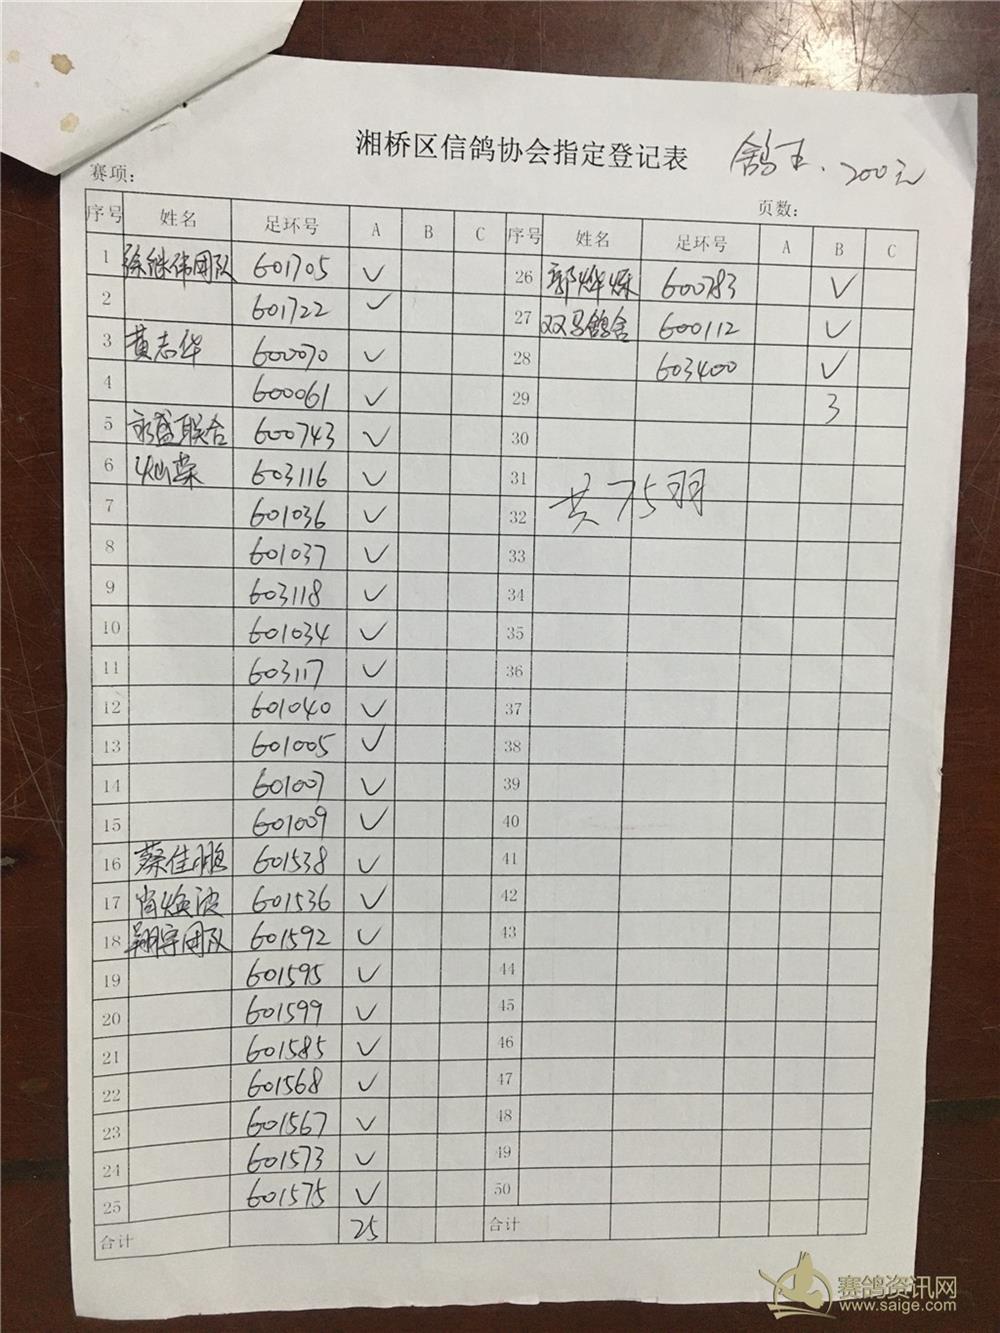 湘桥区信鸽协会指定登记表 鸽王.200元
赛项: 页数:
序号 姓名 足环号 A B C 序号 姓名 足环号 A B C
1 徐继伟团队 601705 √ 26 郭烨烁 600783 √
2 601722 √ 27 双马鸽舍 600112 √
3 黄志华 600070 √ 28 603400 √
4 600061 √ 29 3
5 永盛联合 600743 √ 30
6 灿荣 603116 √ 31 共75羽
7 601036 √ 32
8 601037 √ 33
9 603118 √ 34
10 601034 √ 35
11 603117 √ 36
12 601040 √ 37
13 601005 √ 38
14 601007 √ 39
15 601009 √ 40
16 蔡佳鹏 601538 √ 41
17 肖焕波 601536 √ 42
18 翔宇团队 601592 √ 43
19 601595 √ 44
20 601599 √ 45
21 601585 √ 46
22 601568 √ 47
23 601567 √ 48
24 601573 √ 49
25 601575 √ 50
合计 25 合计
赛鸽资讯网
www.saige.com